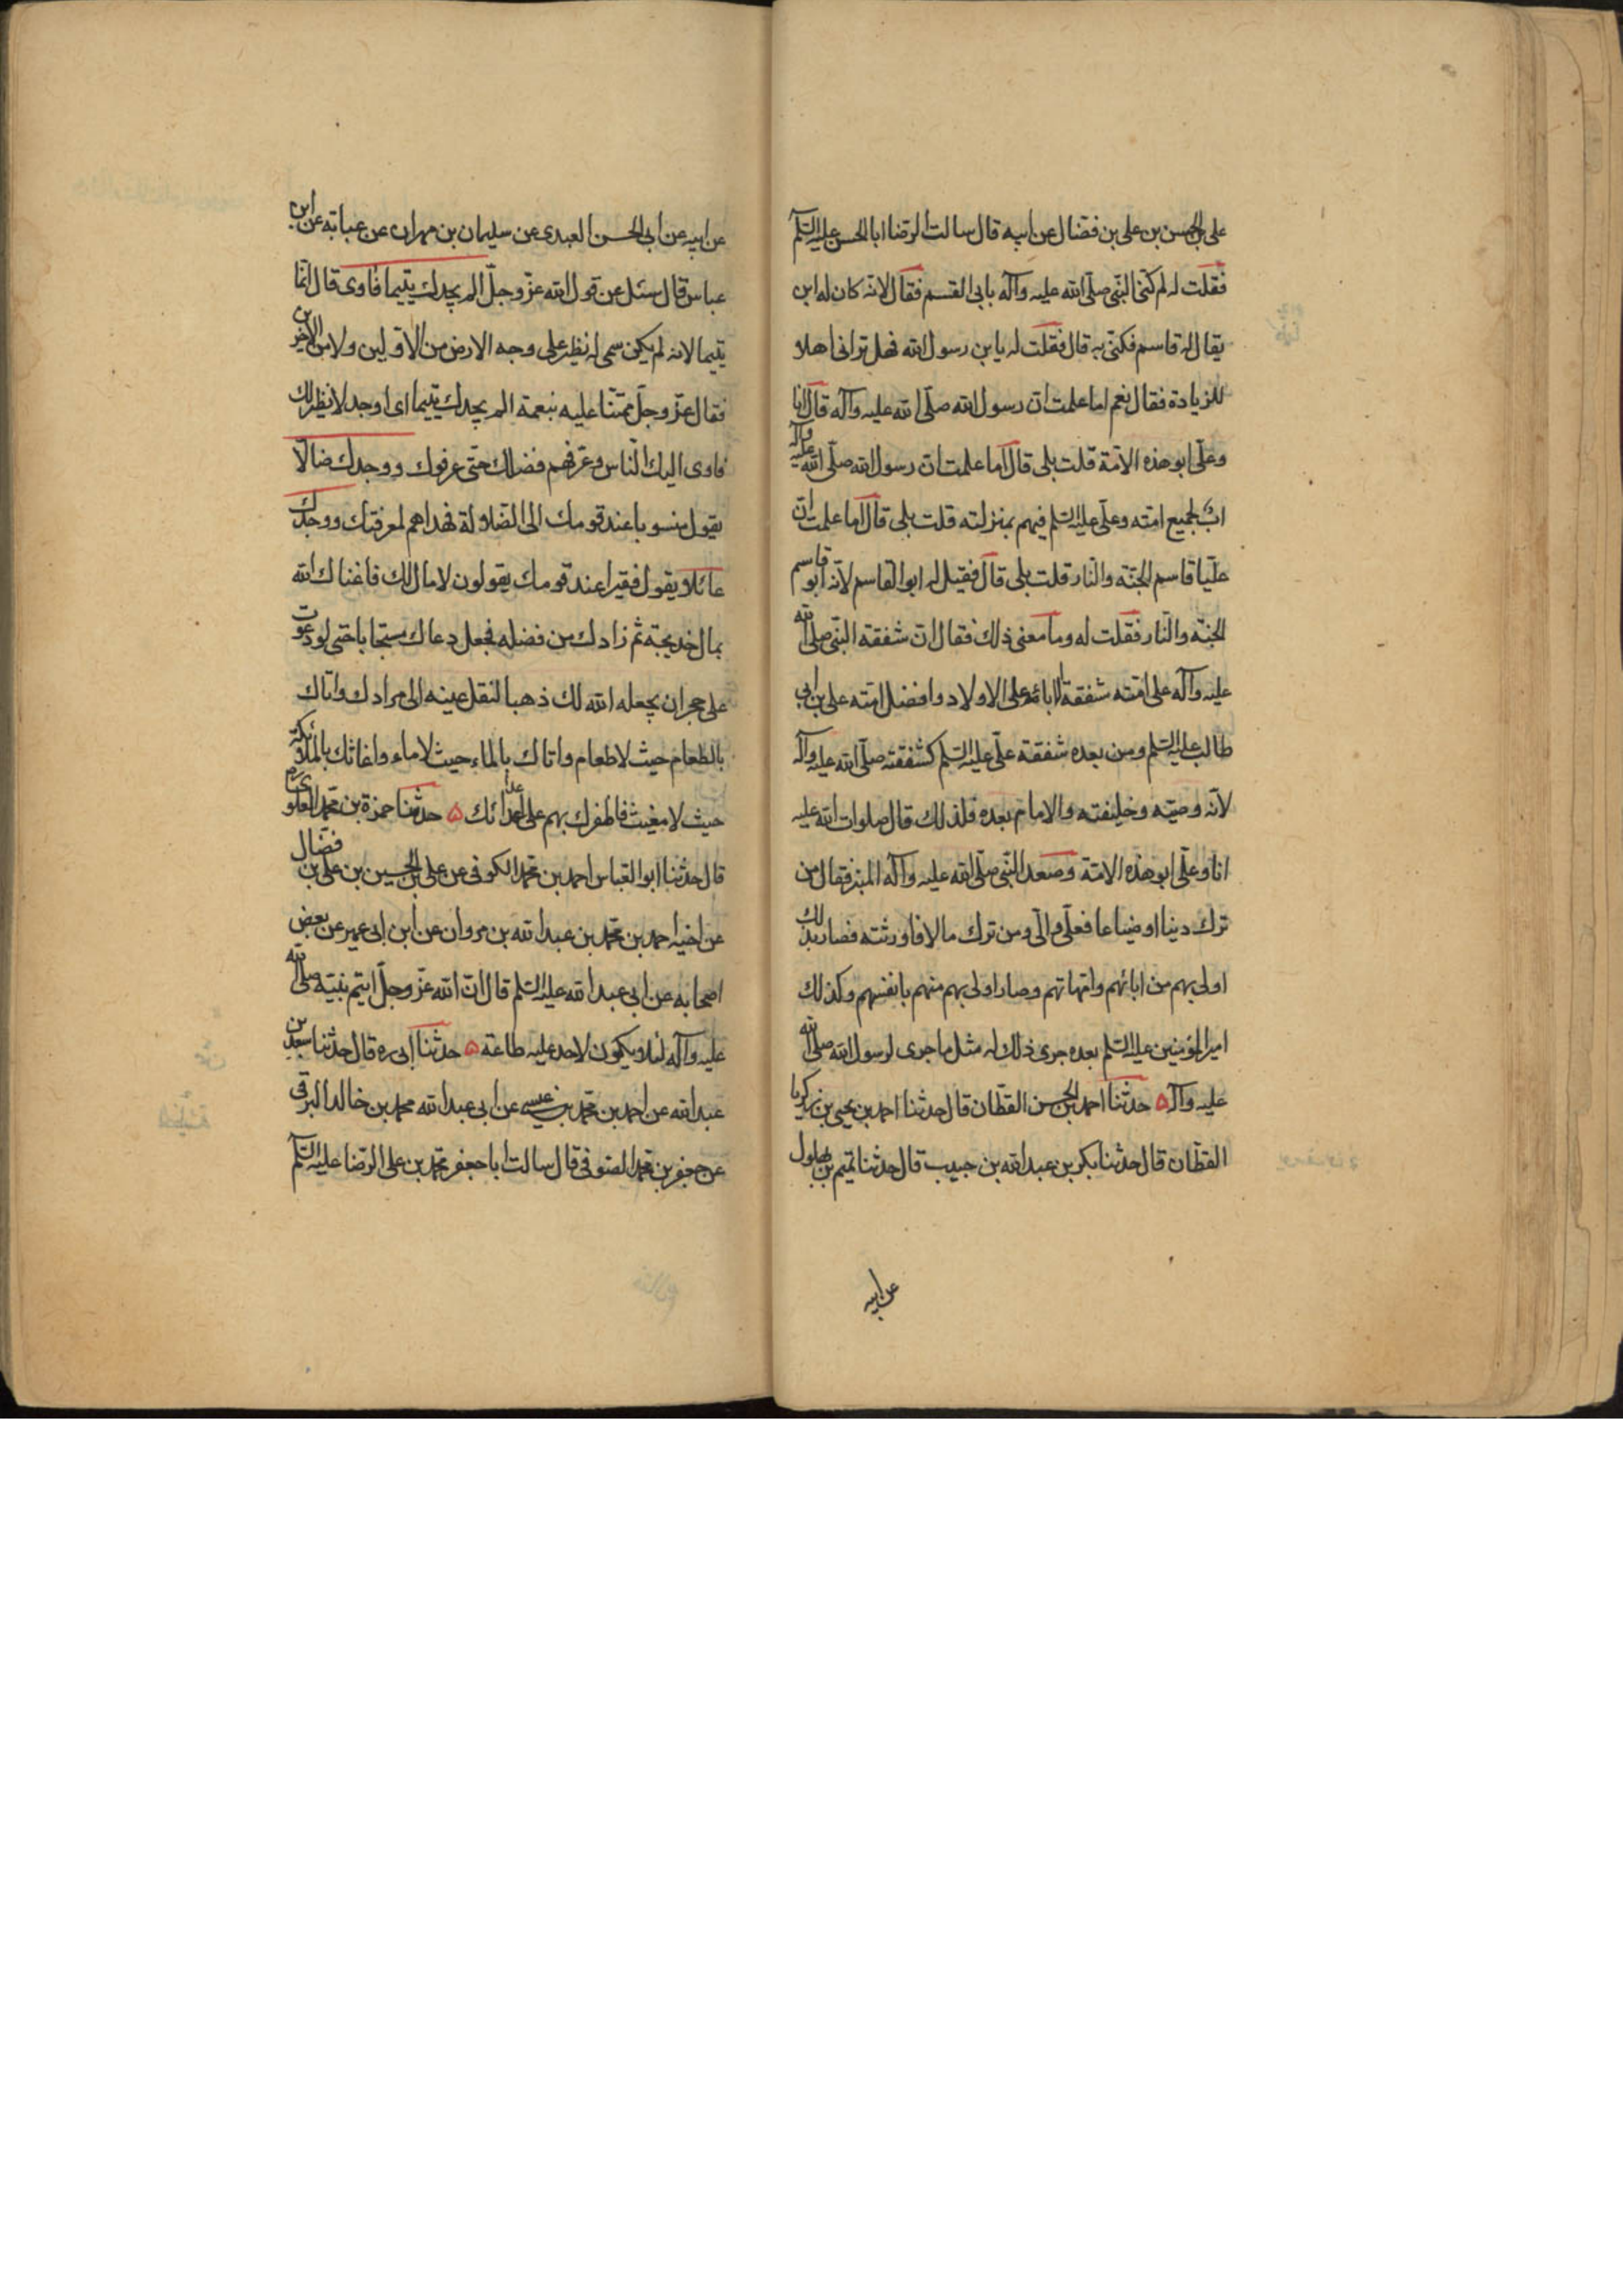 علي بن الحسن بن علي بن فضال عن ابيه قال سالت الرضا ابا الحسن عليه السلم
فقلت له لم كنى النبي صلى الله عليه وآله بابي القسم فقال لانه كان له ابن
يقال له قاسم فكنى به قال فقلت له يا بن رسول الله فهل تراني اهلا
للزيادة فقال نعم اما علمت ان رسول الله صلى الله عليه وآله قال انا
وعلي ابو هذه الامة قلت بلى قال اما علمت ان رسول الله صلى الله عليه وآله
اب لجميع امته وعلي عليه السلم فيهم بمنزلته قلت بلى قال اما علمت ان
عليا قاسم الجنة والنار قلت بلى قال فقيل له ابو القاسم لانه ابو قاسم
الجنة والنار فقلت له وما معنى ذلك فقال ان شفقة النبي صلى الله
عليه وآله على امته شفقة الابائه على الاولاد وافضل امته علي بن ابي
طالب عليه السلم ومن بعده شفقة علي عليه السلم كشفقته صلى الله عليه وآله
لانه وصيه وخليفته والامام بعده فلذلك قال صلوات الله عليه
انا وعلي ابو هذه الامة وصعد النبي صلى الله عليه وآله المنبر فقال من
ترك دينا او ضياعا فعلي والي ومن ترك مالا فلورثته فصار بذلك
اولى بهم من ابائهم وامهاتهم وصار اولى بهم منهم بانفسهم وكذلك
امير المؤمنين عليه السلم بعده جرى ذلك له مثل ما جرى لرسول الله صلى الله
عليه وآله ۵ حدثنا احمد بن الحسن القطان قال حدثنا احمد بن يحيى بن زكريا
القطان قال حدثنا بكر بن عبد الله بن حبيب قال حدثنا تميم بن بهلول
عن ابيه
عن ابيه عن ابي الحسن العبدي عن سليمان بن مهران عن عباية عن ابن
عباس قال سئل عن قول الله عز وجل الم يجدك يتيما فاوى قال انما
يتيما لانه لم يكن سمي له نظير على وجه الارض من الاولين ولا من الاخرين
فقال عز وجل ممتنا عليه بنعمة الم يجدك يتيما اى وجد لا نظير لك
فاوى اليك الناس وعرفهم فضلك حتى عرفوك ووجدك ضالا
يقول منسوبا عند قومك الى الضلالة فهداهم لمعرفتك ووجدك
عائلا يقول فقيرا عند قومك يقولون لا مال لك فاغناك الله
بمال خديجة ثم زادك من فضله فجعل دعاك مستجابا حتى لو دعوت
على حجر ان يجعله الله لك ذهبا لنقل عينه الى مرادك واتاك
بالطعام حيث لا طعام واتاك بالماء حيث لا ماء واغاثك بالملائكة
حيث لا مغيث فاظفرك بهم على اعدائك ۵ حدثنا حمزة بن محمد العلوي
قال حدثنا ابو العباس احمد بن محمد الكوفي عن علي بن الحسين بن علي بن فضال
عن اخيه احمد بن محمد بن عبد الله بن مروان عن ابن ابي عمير عن بعض
اصحابه عن ابي عبد الله عليه السلم قال ان الله عز وجل ايتم نبيه صلى الله
عليه وآله لئلا يكون لاحد عليه طاعة ۵ حدثنا ابي ره قال حدثنا سعد بن
عبد الله عن احمد بن محمد بن عيسى عن ابي عبد الله محمد بن خالد البرقي
عن جعفر بن محمد الصوفي قال سالت ابا جعفر محمد بن علي الرضا عليه السلم